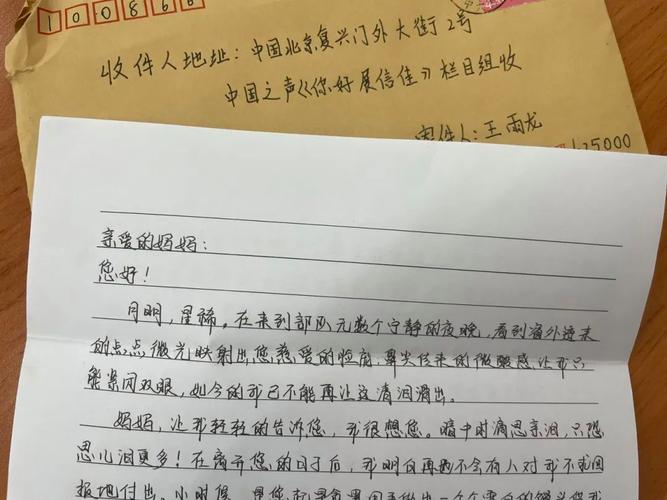 100866
收件人地址：中国北京复兴门外大街2号
中国之声《你好展信佳》栏目组收
寄件人：王雨龙
125000
亲爱的妈妈：
您好！
月明，星稀。在来到部队无数个宁静的夜晚，看到窗外透来
的点点微光映射出您慈爱的脸庞，鼻尖传来的微酸感让我只
能紧闭双眼，如今的我已不能再让这清泪滑出。
妈妈，让我轻轻的告诉您，我很想您。暗中时滴思亲泪，只恐
思儿泪更多！在离开您的日子后，我明白再也不会有人对我不求回
报地付出。小时候，